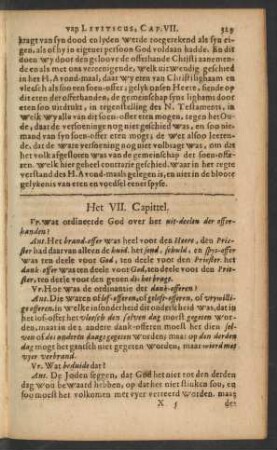 van LEVITICUS, CAP. VII. 329
kragt van syn dood en lyden werde toegerekend als syn eigen,
als of hy in eigener persoon God voldaan hadde. En dit
doen wy door den geloove de offerhande Christi aannemende
en als met ons vereenigende, Welk uitwendig geschied
in het H. Avond-maal, daar wy eten van Christi lighaam en
vleesch als soo een soen-offer: gelyk ons en Heere, sende op
het eten der offerhanden, de gemeenschap syns lighams door
eten soo uitdrukt, in tegenstelling des N. Testaments, in
welk wy mogen eten ons soen-offer, tegen het Oude,
daar de versoeninge nog niet geschied was, en soo niemand
van syn soen-offer eten mogt, de wet alsoo leerende,
dat de versoeninge nog niet volbragt was, om dat
het volk afgesloten was van de gemeinschap des soen-offers.
Welk hier geheel contrarie geschied. Waar in het regte
verstand des H. Avond-maals gelegen is, en niet in de bloote
gelykenis van eten en voedsel eener spyse.
Het VII. Capittel.
Vr. Wat ordineerde God over het uit-deelen der offerhanden?
Ant. Het brand-offer was heel voor den Heere, den Priester
had daar van alleen de huid. het send, schuld, en spys-offer
was ten deele voor God, ten deele voor den Priester. het
dank-offer was ten deele voor God, ten deele voor den Priester,
ten deele voor den genen die het bragt.
Vr. Hoe was de ordinantie der dank-offeren?
Ant. Die waren of lof-offeren, of gelofte-offeren, of vrywillige
offeren. in welke in sonderheid dit onderscheid was, dat in
het lof-offer het vleesch den selven dag moest gegeten worden,
maar in de andere dank-offeren moest het dien selven
of des anderen daags gegeten worden; maar op den derden
dag mogt het gantsch niet gegeten worden, maar wierd met
vyer verbrand.
Vr. Wat beduide dat?
Ant. De Joden seggen, dat God het niet tot den derden
dag wou bewaard hebben, op dat het niet stinken sou, en
sou moest het volkomen met vyer verteerd worden. maar
X 5 der